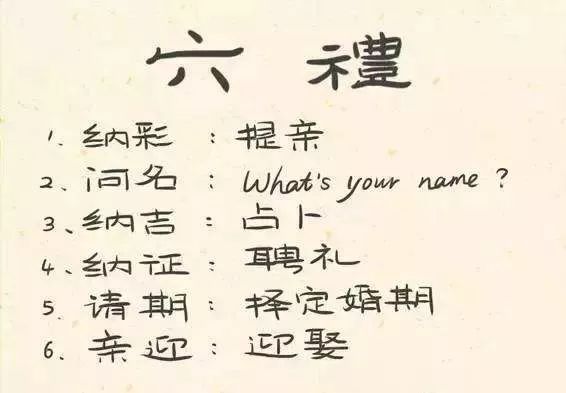 六 禮
1. 纳彩：提亲
2、问名：What's your name？
3、纳吉：占卜
4、纳证：聘礼
5. 请期：择定婚期
6. 亲迎：迎娶